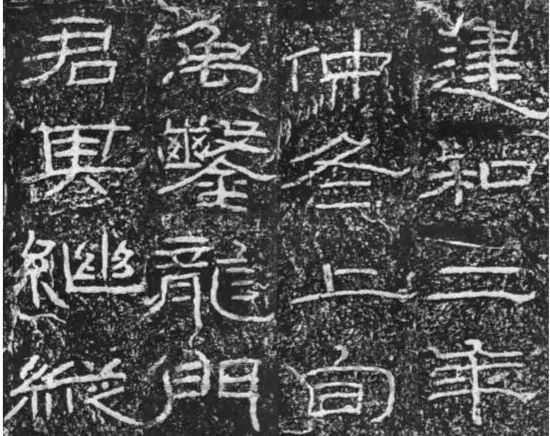 建和二年
仲冬上旬
禹鑿龍門
君其繼縱